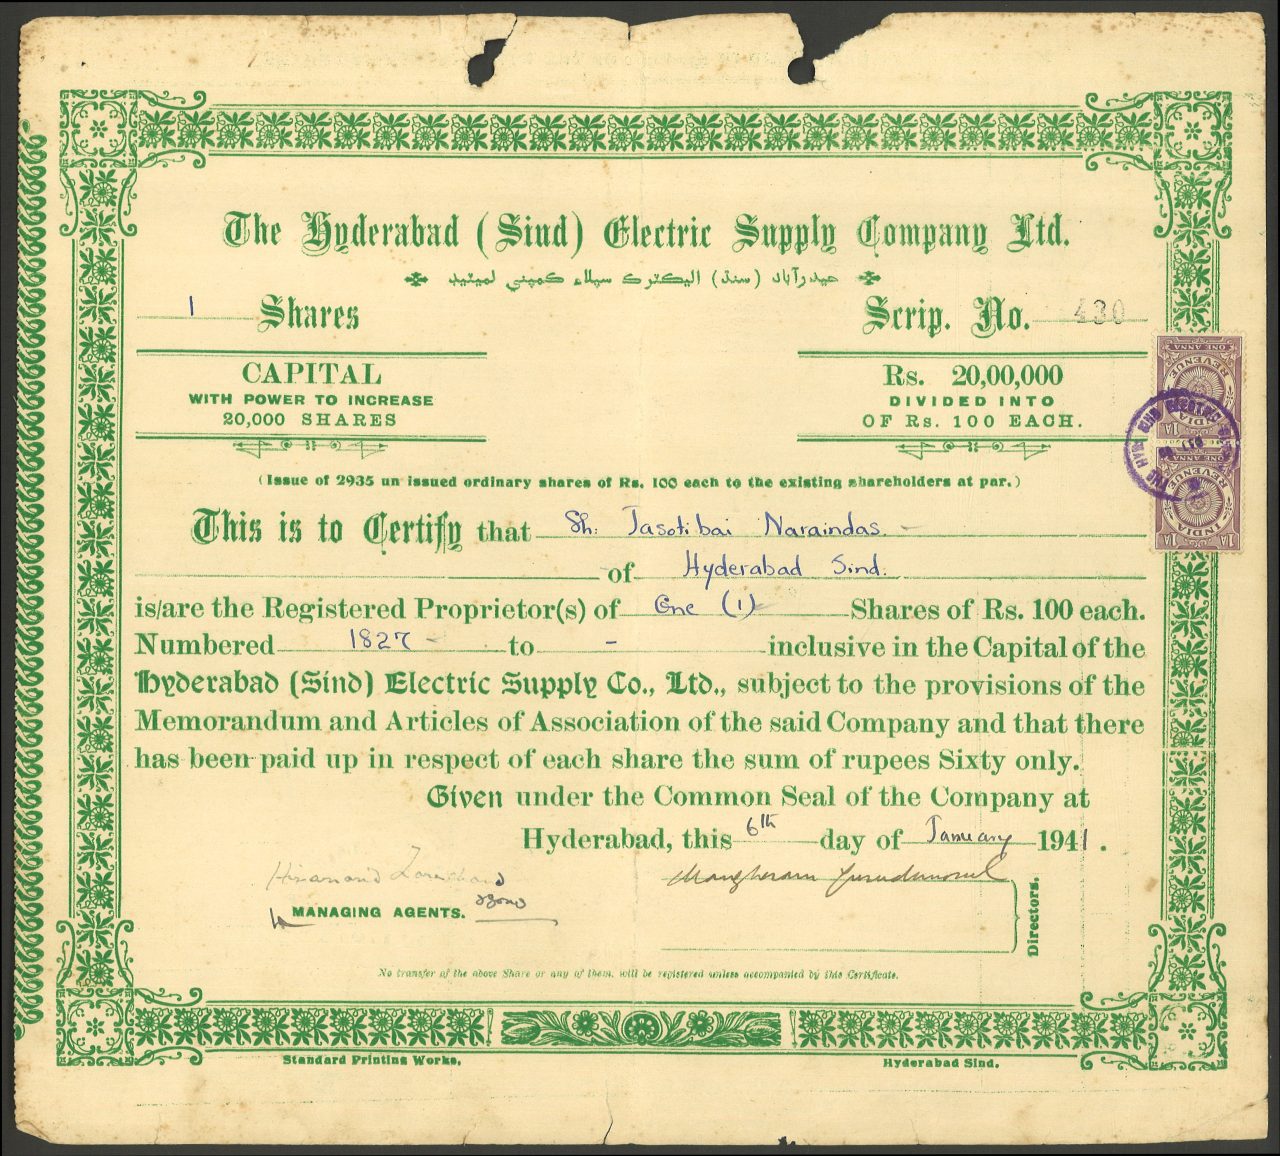 The Hyderabad (Sind) Electric Supply Company Ltd.
حيدرآباد (سنڌ) اليڪٽرڪ سپلاءِ ڪمپني لميٽيڊ
1 Shares
Scrip. No. 430
CAPITAL
WITH POWER TO INCREASE
20,000 SHARES
Rs. 20,00,000
DIVIDED INTO
OF Rs. 100 EACH.
ONE ANNA
REVENUE
INDIA
1A
1A
ONE ANNA
REVENUE
INDIA
1A
1A
(Issue of 2935 un issued ordinary shares of Rs. 100 each to the existing shareholders at par.)
This is to Certify that Sh: Jasotibai Naraindas.
of Hyderabad Sind.
is/are the Registered Proprietor(s) of One (1) Shares of Rs. 100 each.
Numbered 1827 - to - inclusive in the Capital of the
Hyderabad (Sind) Electric Supply Co., Ltd., subject to the provisions of the
Memorandum and Articles of Association of the said Company and that there
has been paid up in respect of each share the sum of rupees Sixty only.
Given under the Common Seal of the Company at
Hyderabad, this 6th day of January 1941.
MANAGING AGENTS.
Directors.
No transfer of the above Share or any of them, will be registered unless accompanied by this Certificate.
Standard Printing Works,
Hyderabad Sind.